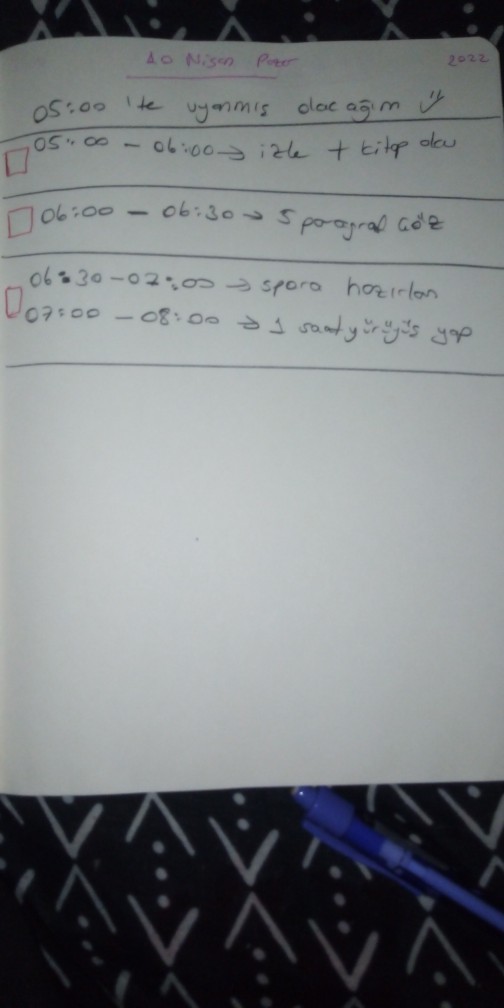 10 Nisan Pazar 2022
05:00 'te uyanmış olacağım
05:00 - 06:00 → izle + kitap oku
06:00 - 06:30 → 5 paragraf çöz
06:30 - 07:00 → spora hazırlan
07:00 - 08:00 → 1 saat yürüyüş yap